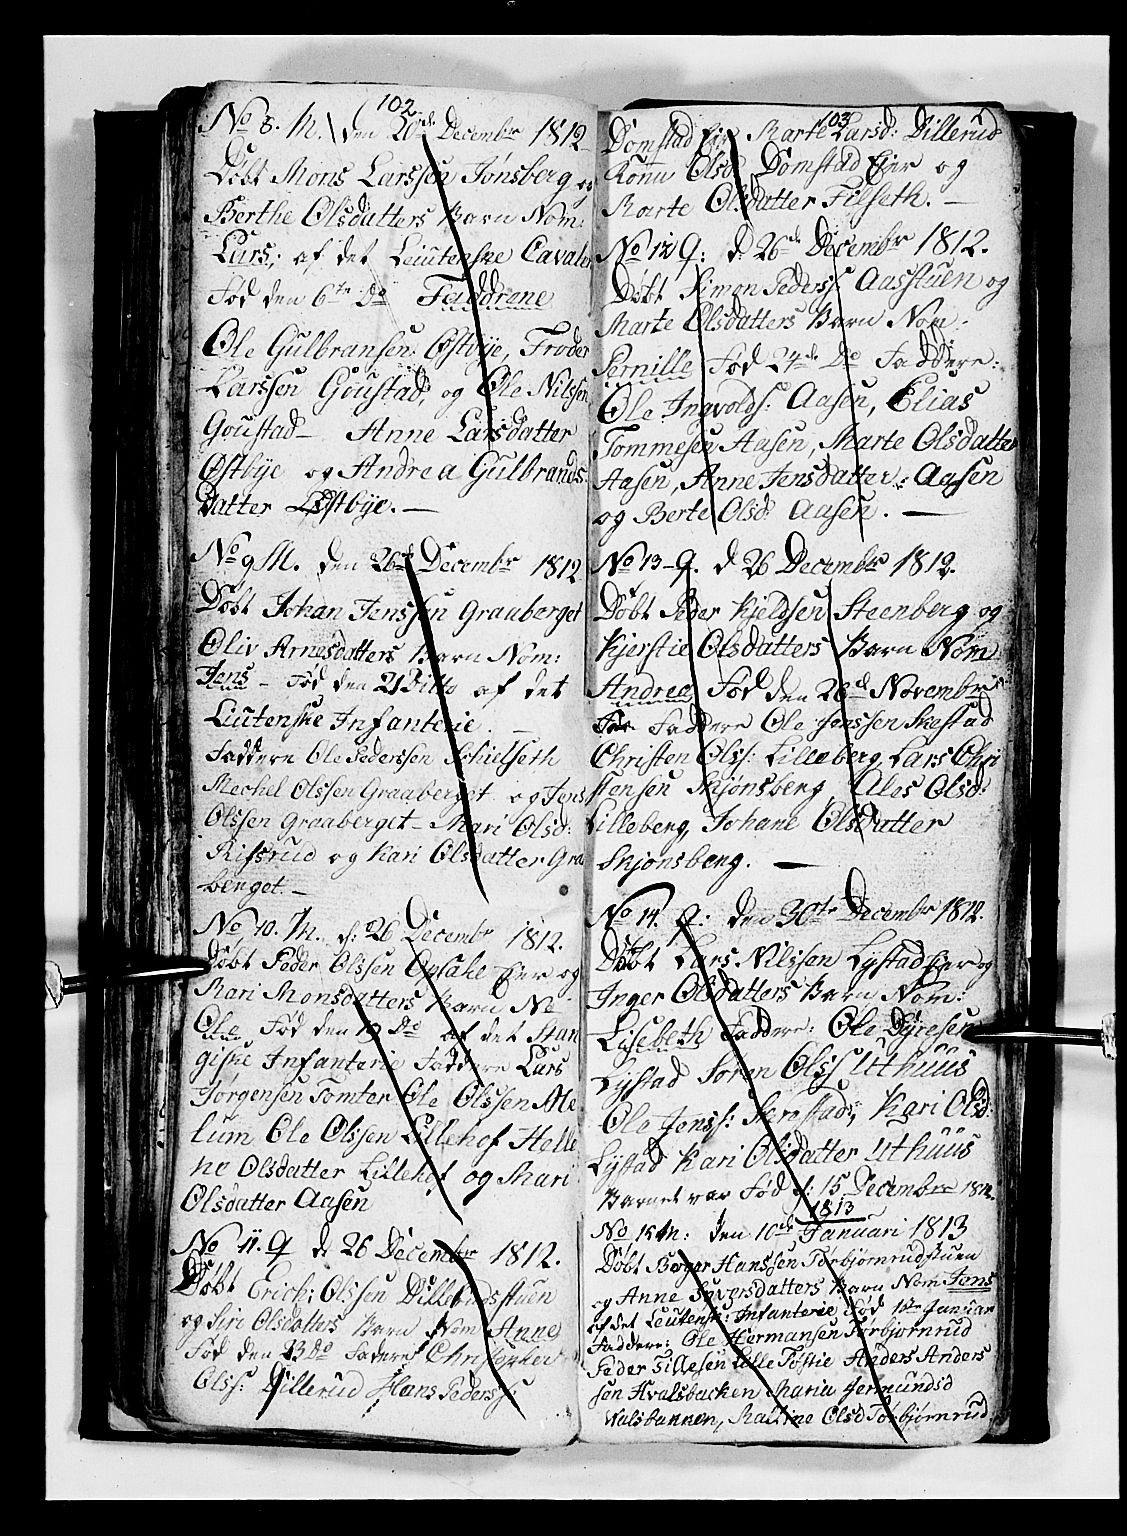 102
No 8. M. den 26de Decembr 1812
Døbt Mons Larssen Tønsberg og
Berthe Olsdatters Barn Nom:
Lars, af det Leiutenske Cavaler
Fød den 6te do Faddrane
Ole Gulbransen Østbye, Froder
Larssen Goustad, og Ole Nilssen
Goustad – Anne Larsdatter
Østbye og Andrea Gulbrands
datter Østbye. —
No 9 M. den 26de Decembr 1812
Døbt Johan Jenssen Graaberget
Oliv Arnesdatters Barn Nom:
Jens – Fød den 21 Ditto af det
Liutenske Infanterie. —
Faddere Ole Pederssen Schielseth
Mechel Olssen Graaberget og Jens
Olssen Graaberget – Mari Olsd:
Rifsrud og Kari Olsdatter Gra
berget. —
No 10. M. d: 26 Decembr 1812.
Døbt Peder Olssen Opsahl Eier og
Mari Monsdatters Barn No
Ole Fød den 19 do af det Stan
giske Infanterie Faddere Lars
Jørgensen Tomter Ole Olssen Me
lum Ole Olssen Lillehof Helle
ne Olsdatter Lillehof og Mari
Olsdatter Aasen
No 11. Q d 26 Decembr 1812.
Døbt Erich: Olssen Dillerudstuen
og Siri Olsdatters Barn Nom Anne
Fød den 23 do Fadere Christopher
Olss: Dillerud Hans Pederss:
103
Domstad Eir Marte Larsd: Dillerud
Kønu Olsd Domstad Eier og
Marte Olsdatter Filseth. —
No 12 Q: d: 26de Decembr 1812.
Døbt Simon Pederss Aasstuen og
Marte Olsdatters Barn Nom.
Pernille Fød 24de Do Faddere:
Ole Ingvolds: Aasen, Elias
Tommesen Aasen, Marte Olsdatter
Aasen, Anne Jensdatter: Aasen
og Berte Olsd: Aasen. —
No 13 – Q. d 26 Decembr 1812.
Døbt Peder Kjeldsen Steenberg og
Kjerstie Olsdatters Barn Nom
Andrea, Fød den 28de Novembr
Faddere Ole Jonssen Skafstad
Christen Olss: Lilleberg, Lars Chri
stensen Skjønsberg, Alos Olsd:
Lilleberg, Johane Olsdatter
Skjønsberg. —
No 14. Q: den 30te Decembr 1812.
Døbt Lars Nilssen Lystad Eier og
Inger Olsdatters Barn Nom:
Lisebeth Faddere: Ole Dyresen
Lystad Søren Olss Uthuus
Ole Jenss: Skrestad, Kari Olsd
Lystad Kari Olsdatter Uthuus
Barnet var Fød d: 15 Decembr 1812.
1813
No 1 M: den 10de Januari 1813
Døbt Børger Hanssen Torbjørnrudstuen
og Anne Syversdatters Barn Nom Jens
af det Leutensk: Infanterie Fød 1ste Januar
Faddere: Ole Hermansen Torbjørnrud
Peder Tillesen Lille Tøftie Anders Anders
sen Hvalsbacken Maria Jermundsd
Walsbannen, Mattine Olsd Torbjørnrud